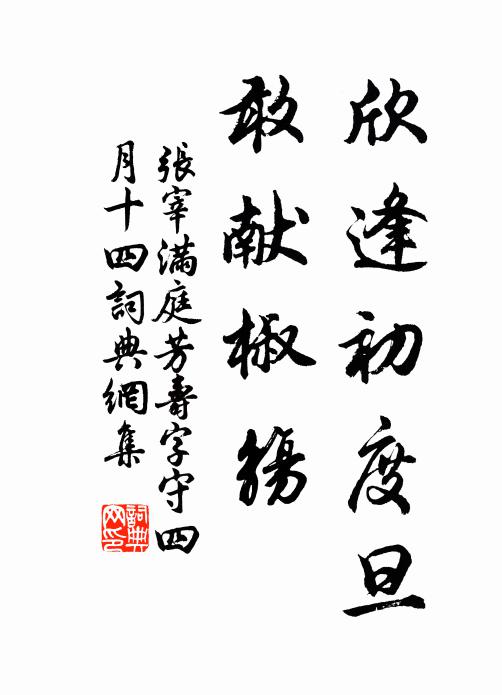 欣逢初度旦
敢献椒觞
張宰滿庭芳壽字守四
月十四詞典網集
詞典
网印